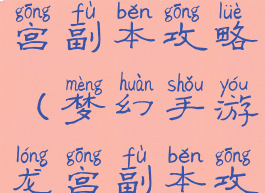 gōng fù běn gōng lüè
宫副本攻略
mèng huàn shǒu yóu
(梦幻手游
lóng gōng fù běn gōng
龙宫副本攻